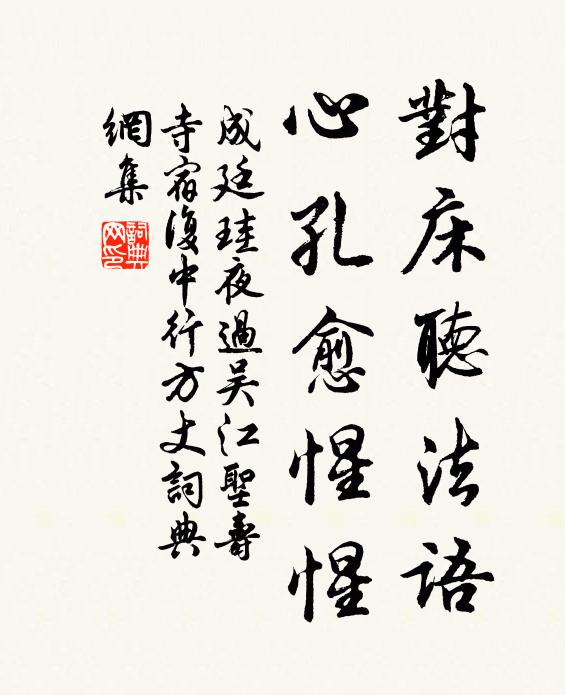 對床聽法語
心孔愈惺惺
成廷珪夜過吳江聖壽
寺宿復中行方丈詞典
網集
詞典網印